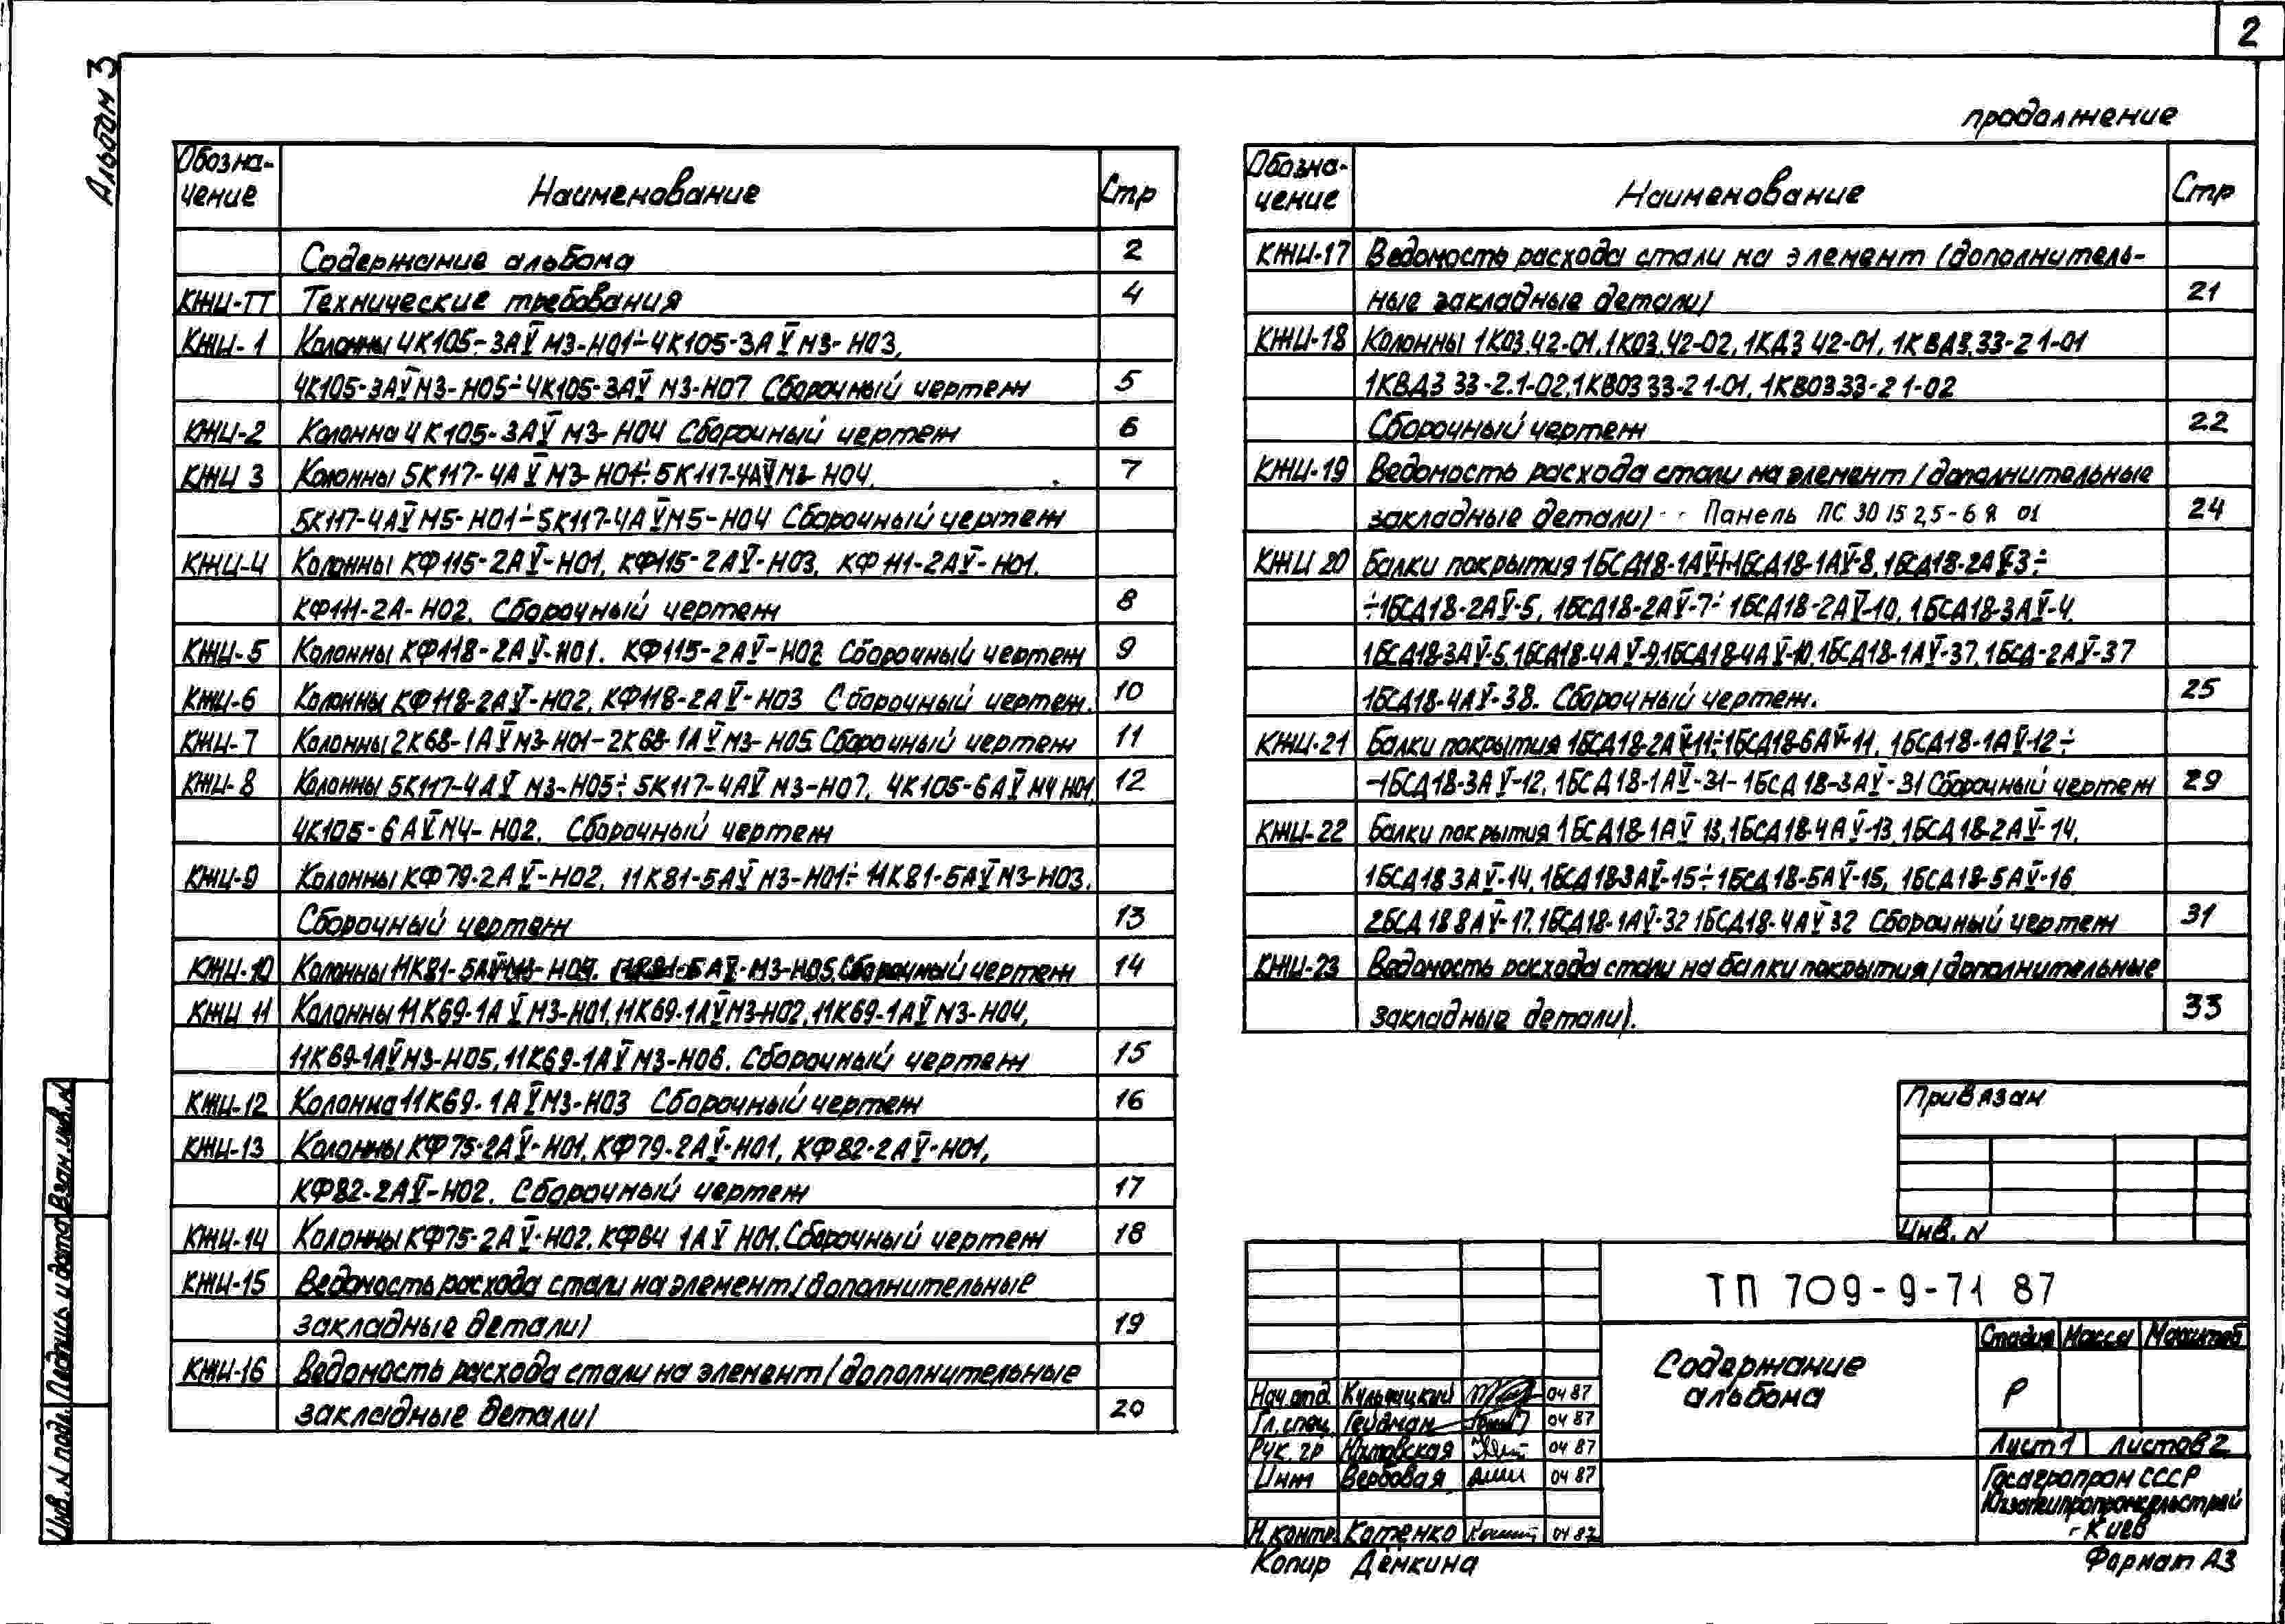 2
Альбом 3
продолжение
Обозна-
чение
Наименование
Стр
Содержание альбома 2
КЖИ-ТТ Технические требования 4
КЖИ-1 Колонны 4К105-3АⅤ М3-Н01÷4К105-3АⅤ М3-Н03,
4К105-3АⅤ М3-Н05÷4К105-3АⅤ М3-Н07 Сборочный чертеж 5
КЖИ-2 Колонна 4К105-3АⅤ М3-Н04 Сборочный чертеж 6
КЖИ 3 Колонны 5К117-4АⅤ М3-Н01÷5К117-4АⅤ М3-Н04, 7
5К117-4АⅤ М5-Н01÷5К117-4АⅤ М5-Н04 Сборочный чертеж
КЖИ-4 Колонны КФ115-2АⅤ-Н01, КФ115-2АⅤ-Н03, КФ111-2АⅤ-Н01,
КФ111-2А-Н02. Сборочный чертеж 8
КЖИ-5 Колонны КФ118-2АⅤ-Н01. КФ115-2АⅤ-Н02 Сборочный чертеж 9
КЖИ-6 Колонны КФ118-2АⅤ-Н02, КФ118-2АⅤ-Н03 Сборочный чертеж. 10
КЖИ-7 Колонны 2К68-1АⅤ М3-Н01-2К68-1АⅤ М3-Н05 Сборочный чертеж 11
КЖИ-8 Колонны 5К117-4АⅤ М3-Н05÷5К117-4АⅤ М3-Н07, 4К105-6АⅤ М4 Н01, 12
4К105-6АⅤ М4-Н02. Сборочный чертеж
КЖИ-9 Колонны КФ79-2АⅤ-Н02, 11К81-5АⅤ М3-Н01÷11К81-5АⅤ М3-Н03,
Сборочный чертеж 13
КЖИ-10 Колонны 11К81-5АⅤ М3-Н04. М3-Н05. Сборочный чертеж 14
КЖИ 11 Колонны 11К69-1АⅤ М3-Н01, 11К69-1АⅤ М3-Н02, 11К69-1АⅤ М3-Н04,
11К69-1АⅤ М3-Н05, 11К69-1АⅤ М3-Н06. Сборочный чертеж 15
КЖИ-12 Колонна 11К69-1АⅤ М3-Н03 Сборочный чертеж 16
КЖИ-13 Колонны КФ75-2АⅤ-Н01, КФ79-2АⅤ-Н01, КФ82-2АⅤ-Н01,
КФ82-2АⅤ-Н02. Сборочный чертеж 17
КЖИ-14 Колонны КФ75-2АⅤ-Н02, КФ64 1АⅤ Н01. Сборочный чертеж 18
КЖИ-15 Ведомость расхода стали на элемент /дополнительные
закладные детали/ 19
КЖИ-16 Ведомость расхода стали на элемент /дополнительные
закладные детали/ 20
Обозна-
чение
Наименование
Стр
КЖИ-17 Ведомость расхода стали на элемент /дополнитель-
ные закладные детали/ 21
КЖИ-18 Колонны 1К03.42-01, 1К03.42-02, 1КД3 42-01, 1КВД3.33-2 1-01
1КВД3 33-2.1-02, 1КВ03 33-2 1-01, 1КВ03 33-2 1-02
Сборочный чертеж 22
КЖИ-19 Ведомость расхода стали на элемент /дополнительные
закладные детали/ Панель ПС 30 15 2,5-6 Я 01 24
КЖИ 20 Балки покрытия 1БСД18-1АⅤ-1÷1БСД18-1АⅤ-8, 1БСД18-2АⅤ-3÷
÷1БСД18-2АⅤ-5, 1БСД18-2АⅤ-7÷1БСД18-2АⅤ-10, 1БСД18-3АⅤ-4,
1БСД18-3АⅤ-5, 1БСД18-4АⅤ-9, 1БСД18-4АⅤ-10, 1БСД18-1АⅤ-37, 1БСД-2АⅤ-37
1БСД18-4АⅤ-38. Сборочный чертеж. 25
КЖИ-21 Балки покрытия 1БСД18-2АⅤ-11÷1БСД18-6АⅤ-11, 1БСД18-1АⅤ-12÷
-1БСД18-3АⅤ-12, 1БСД18-1АⅤ-31-1БСД18-3АⅤ-31 Сборочный чертеж 29
КЖИ-22 Балки покрытия 1БСД18-1АⅤ 13, 1БСД18-4АⅤ-13, 1БСД18-2АⅤ-14,
1БСД18 3АⅤ-14, 1БСД18-3АⅤ-15÷1БСД18-5АⅤ-15, 1БСД18-5АⅤ-16
2БСД18 8АⅤ-17, 1БСД18-1АⅤ-32 1БСД18-4АⅤ 32 Сборочный чертеж 31
КЖИ-23 Ведомость расхода стали на балки покрытия /дополнительные
закладные детали/. 33
Привязан
Инв. N
ТП 709-9-71 87
Содержание
альбома
Стадия Масса Масштаб
Р
Лист 1 Листов 2
Госагропром СССР
г Киев
Нач. отд. Кульчицкий 04 87
Гл. спец. Гейдман 04 87
Рук. гр 04 87
Инж Вербовая 04 87
Н. контр. Катенко 04 87
Копир Дёмкина
Формат А3
Взам. инв. N
Подпись и дата
Инв. N подл.